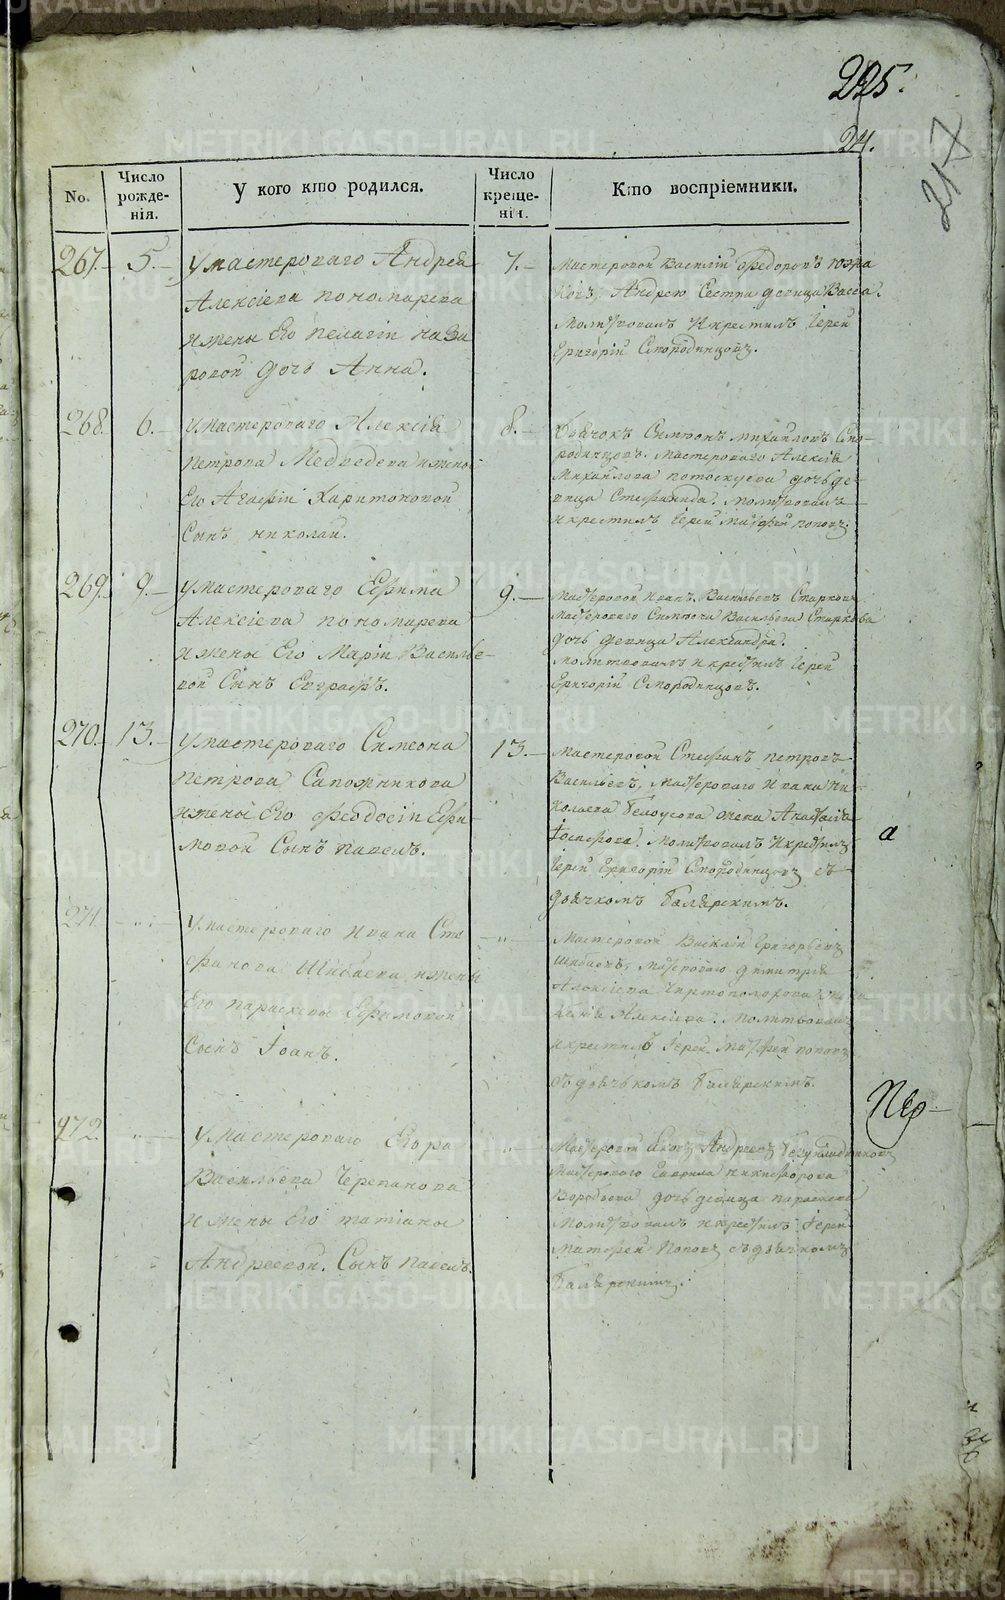 225.
24.
217
No.
Число рожде-
нія.
У кого кто родился.
Число креще-
нія.
Кто воспріемники.
267.
5.
У мастероваго Андрея
Алексіева пономарева
и жены Его пелагіи наза
ровой дочь Анна.
7.
Мастеровой Василій Ѳедоровъ
Андрею Сестра девица Васса.
Молитвовалъ и крестилъ Іерей
Григорій Смородинцовъ.
268.
6.
У мастероваго Алексія
петрова Медведева и жены
Его Агафіи Харитоновой
Сынъ николай.
8.
Дьячокъ Симеонъ михайловъ Смо-
родинцовъ. мастероваго Алексія
Михайлова потоскуева дочь де-
вица Стефанида. молитвовалъ
и крестилъ Іерей матфей поповъ.
269.
9.
У мастероваго Ефима
Алексіева пономарева
и жены Его Маріи Василье-
вой Сынъ Евграфъ.
9.
Мастеровой Иванъ Васильевъ Старковъ
мастероваго Симеона Васильева Старкова
дочь девица Александра.
молитвовалъ и крестилъ Іерей
Григорій Смородинцовъ.
270.
13.
У мастероваго Симеона
петрова Сапожникова
и жены Его Ѳеодосіи Ефи-
мовой Сынъ павелъ.
13.
Мастеровой Стефанъ петровъ
Васильевъ, мастероваго Ивана Ни-
колаева Белоусова жена Анастасія
Іосифова. молитвовалъ и крестилъ
Іерей Григорій Смородинцовъ съ
дьячкомъ Боярскимъ.
а
271.
У мастероваго Ивана Сте
фанова Шибаева и жены
Его параскевы Ефимовой
Сынъ Іоанъ.
Мастеровой Василій Григорьевъ
Шибаевъ, мастероваго димитрія
Алексіева Чертополохова жена
Алексіева. молитвовалъ
и крестилъ Іерей матфей поповъ
съ дьячькомъ Боярскимъ.
272.
У мастероваго Егора
Васильева Черепанова
и жены Его татіаны
Андреевой. Сынъ павелъ.
Мастеровой Яковъ Андреевъ
мастероваго Гаврила никифорова
Воробьева дочь девица параскева
молитвовалъ и крестилъ Іерей
Матфей поповъ съ дьячкомъ
Боярскимъ.
METRIKI.GASO-URAL.RU